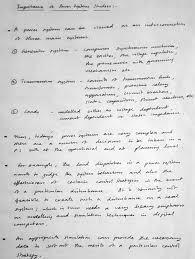 Importance of Power System Studies:-
• A power system can be viewed as an interconnection
of three main systems.
① Generation system - comprises synchronous machines,
the exciter, the voltage regulator,
the prime mover with governing
mechanism etc.
② Transmission system - consists of transmission lines,
transformers, protective relaying
apparatus, circuit breakers,
static capacitors, shunt reactors etc
③ Loads - modelled either as voltage dependent
current dependent or static impedance
• Now, today's power systems are very complex and
there are a number of decisions to be taken in a
at the operational and at planning level.
• For example, the load dispatcher in a power system
needs to judge the system behaviour and also the
effectiveness of certain control strategies in the event
of a particular disturbance. It is generally not
possible to create such a disturbance on a real
system, which is thus needs a very heavy emphasis
on modelling and simulation techniques on digital
computers.
• An appropriate simulation can provide the necessary
data to sort out the merits of a particular control
strategy.